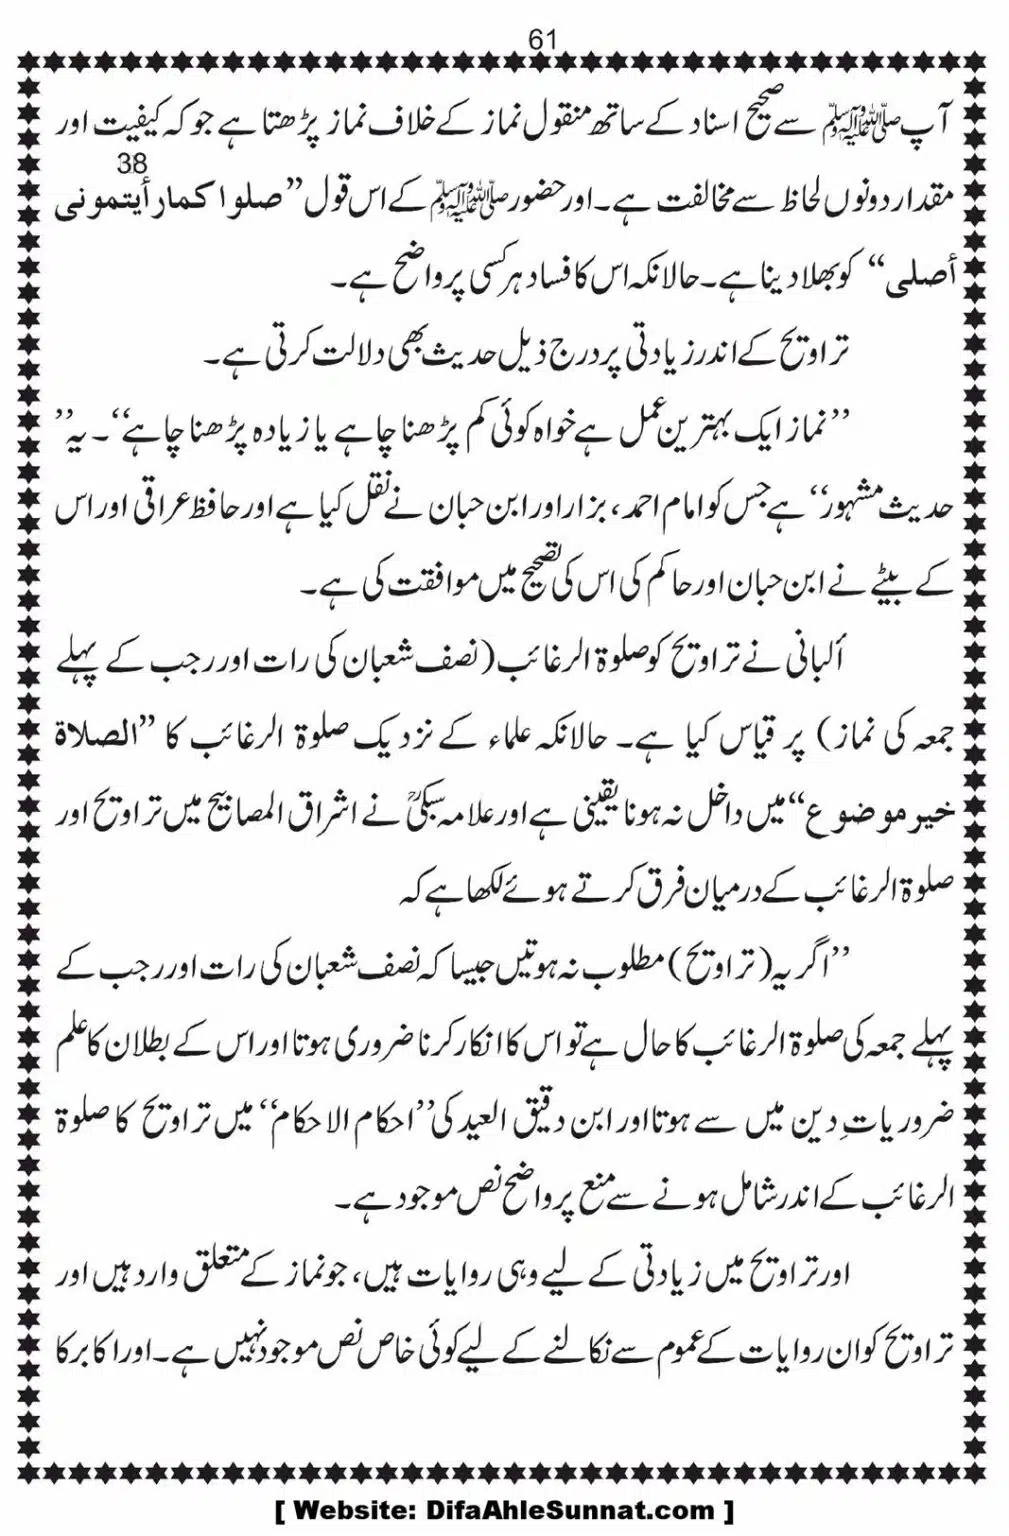 61
آپ ﷺ سے صحیح اسناد کے ساتھ منقول نماز کے خلاف نماز پڑھتا ہے جو کہ کیفیت اور
38
مقدار دونوں لحاظ سے مخالفت ہے۔ اور حضور ﷺ کے اس قول ”صلوا کما رأیتمونی
أصلی“ کو بھلا دینا ہے۔ حالانکہ اس کا فساد ہر کسی پر واضح ہے۔
تراویح کے اندر زیادتی پر درج ذیل حدیث بھی دلالت کرتی ہے۔
’’نماز ایک بہترین عمل ہے خواہ کوئی کم پڑھنا چاہے یا زیادہ پڑھنا چاہے‘‘۔ یہ ’’
حدیث مشہور‘‘ ہے جس کو امام احمد، بزار اور ابن حبان نے نقل کیا ہے اور حافظ عراقی اور اس
کے بیٹے نے ابن حبان اور حاکم کی اس کی تصحیح میں موافقت کی ہے۔
ألبانی نے تراویح کو صلوۃ الرغائب (نصف شعبان کی رات اور رجب کے پہلے
جمعہ کی نماز) پر قیاس کیا ہے۔ حالانکہ علماء کے نزدیک صلوۃ الرغائب کا ”الصلاة
خیر موضوع“ میں داخل نہ ہونا یقینی ہے اور علامہ سبکیؒ نے اشراق المصابیح میں تراویح اور
صلوۃ الرغائب کے درمیان فرق کرتے ہوئے لکھا ہے کہ
’’اگر یہ (تراویح) مطلوب نہ ہوتیں جیسا کہ نصف شعبان کی رات اور رجب کے
پہلے جمعہ کی صلوۃ الرغائب کا حال ہے تو اس کا انکار کرنا ضروری ہوتا اور اس کے بطلان کا علم
ضروریاتِ دین میں سے ہوتا اور ابن دقیق العید کی ’’احکام الاحکام‘‘ میں تراویح کا صلوۃ
الرغائب کے اندر شامل ہونے سے منع پر واضح نص موجود ہے۔
اور تراویح میں زیادتی کے لیے وہی روایات ہیں، جو نماز کے متعلق وارد ہیں اور
تراویح کو ان روایات کے عموم سے نکالنے کے لیے کوئی خاص نص موجود نہیں ہے۔ اور اکابر کا
[ Website: DifaAhleSunnat.com ]